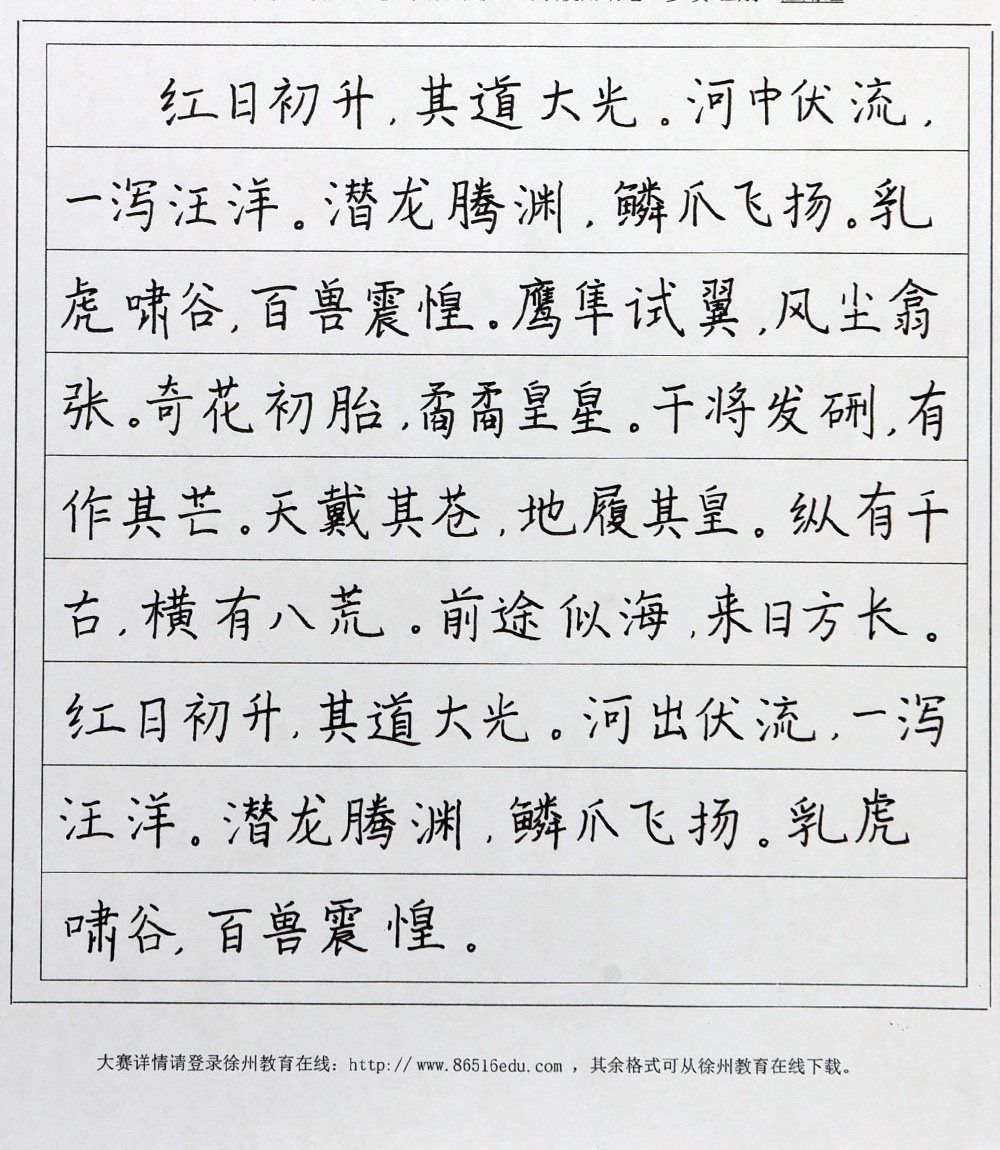 红日初升,其道大光。河中伏流,
一泻汪洋。潜龙腾渊,鳞爪飞扬。乳
虎啸谷,百兽震惶。鹰隼试翼,风尘翕
张。奇花初胎,矞矞皇星。干将发硎,有
作其芒。天戴其苍,地履其皇。纵有千
古,横有八荒。前途似海,来日方长。
红日初升,其道大光。河出伏流,一泻
汪洋。潜龙腾渊,鳞爪飞扬。乳虎
啸谷,百兽震惶。
大赛详情请登录徐州教育在线:http://www.86516edu.com ,其余格式可从徐州教育在线下载。